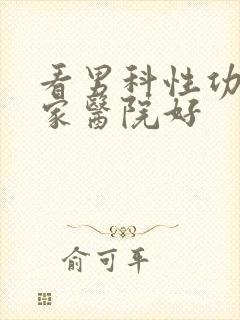 看男科性功
家醫院好
俞可平